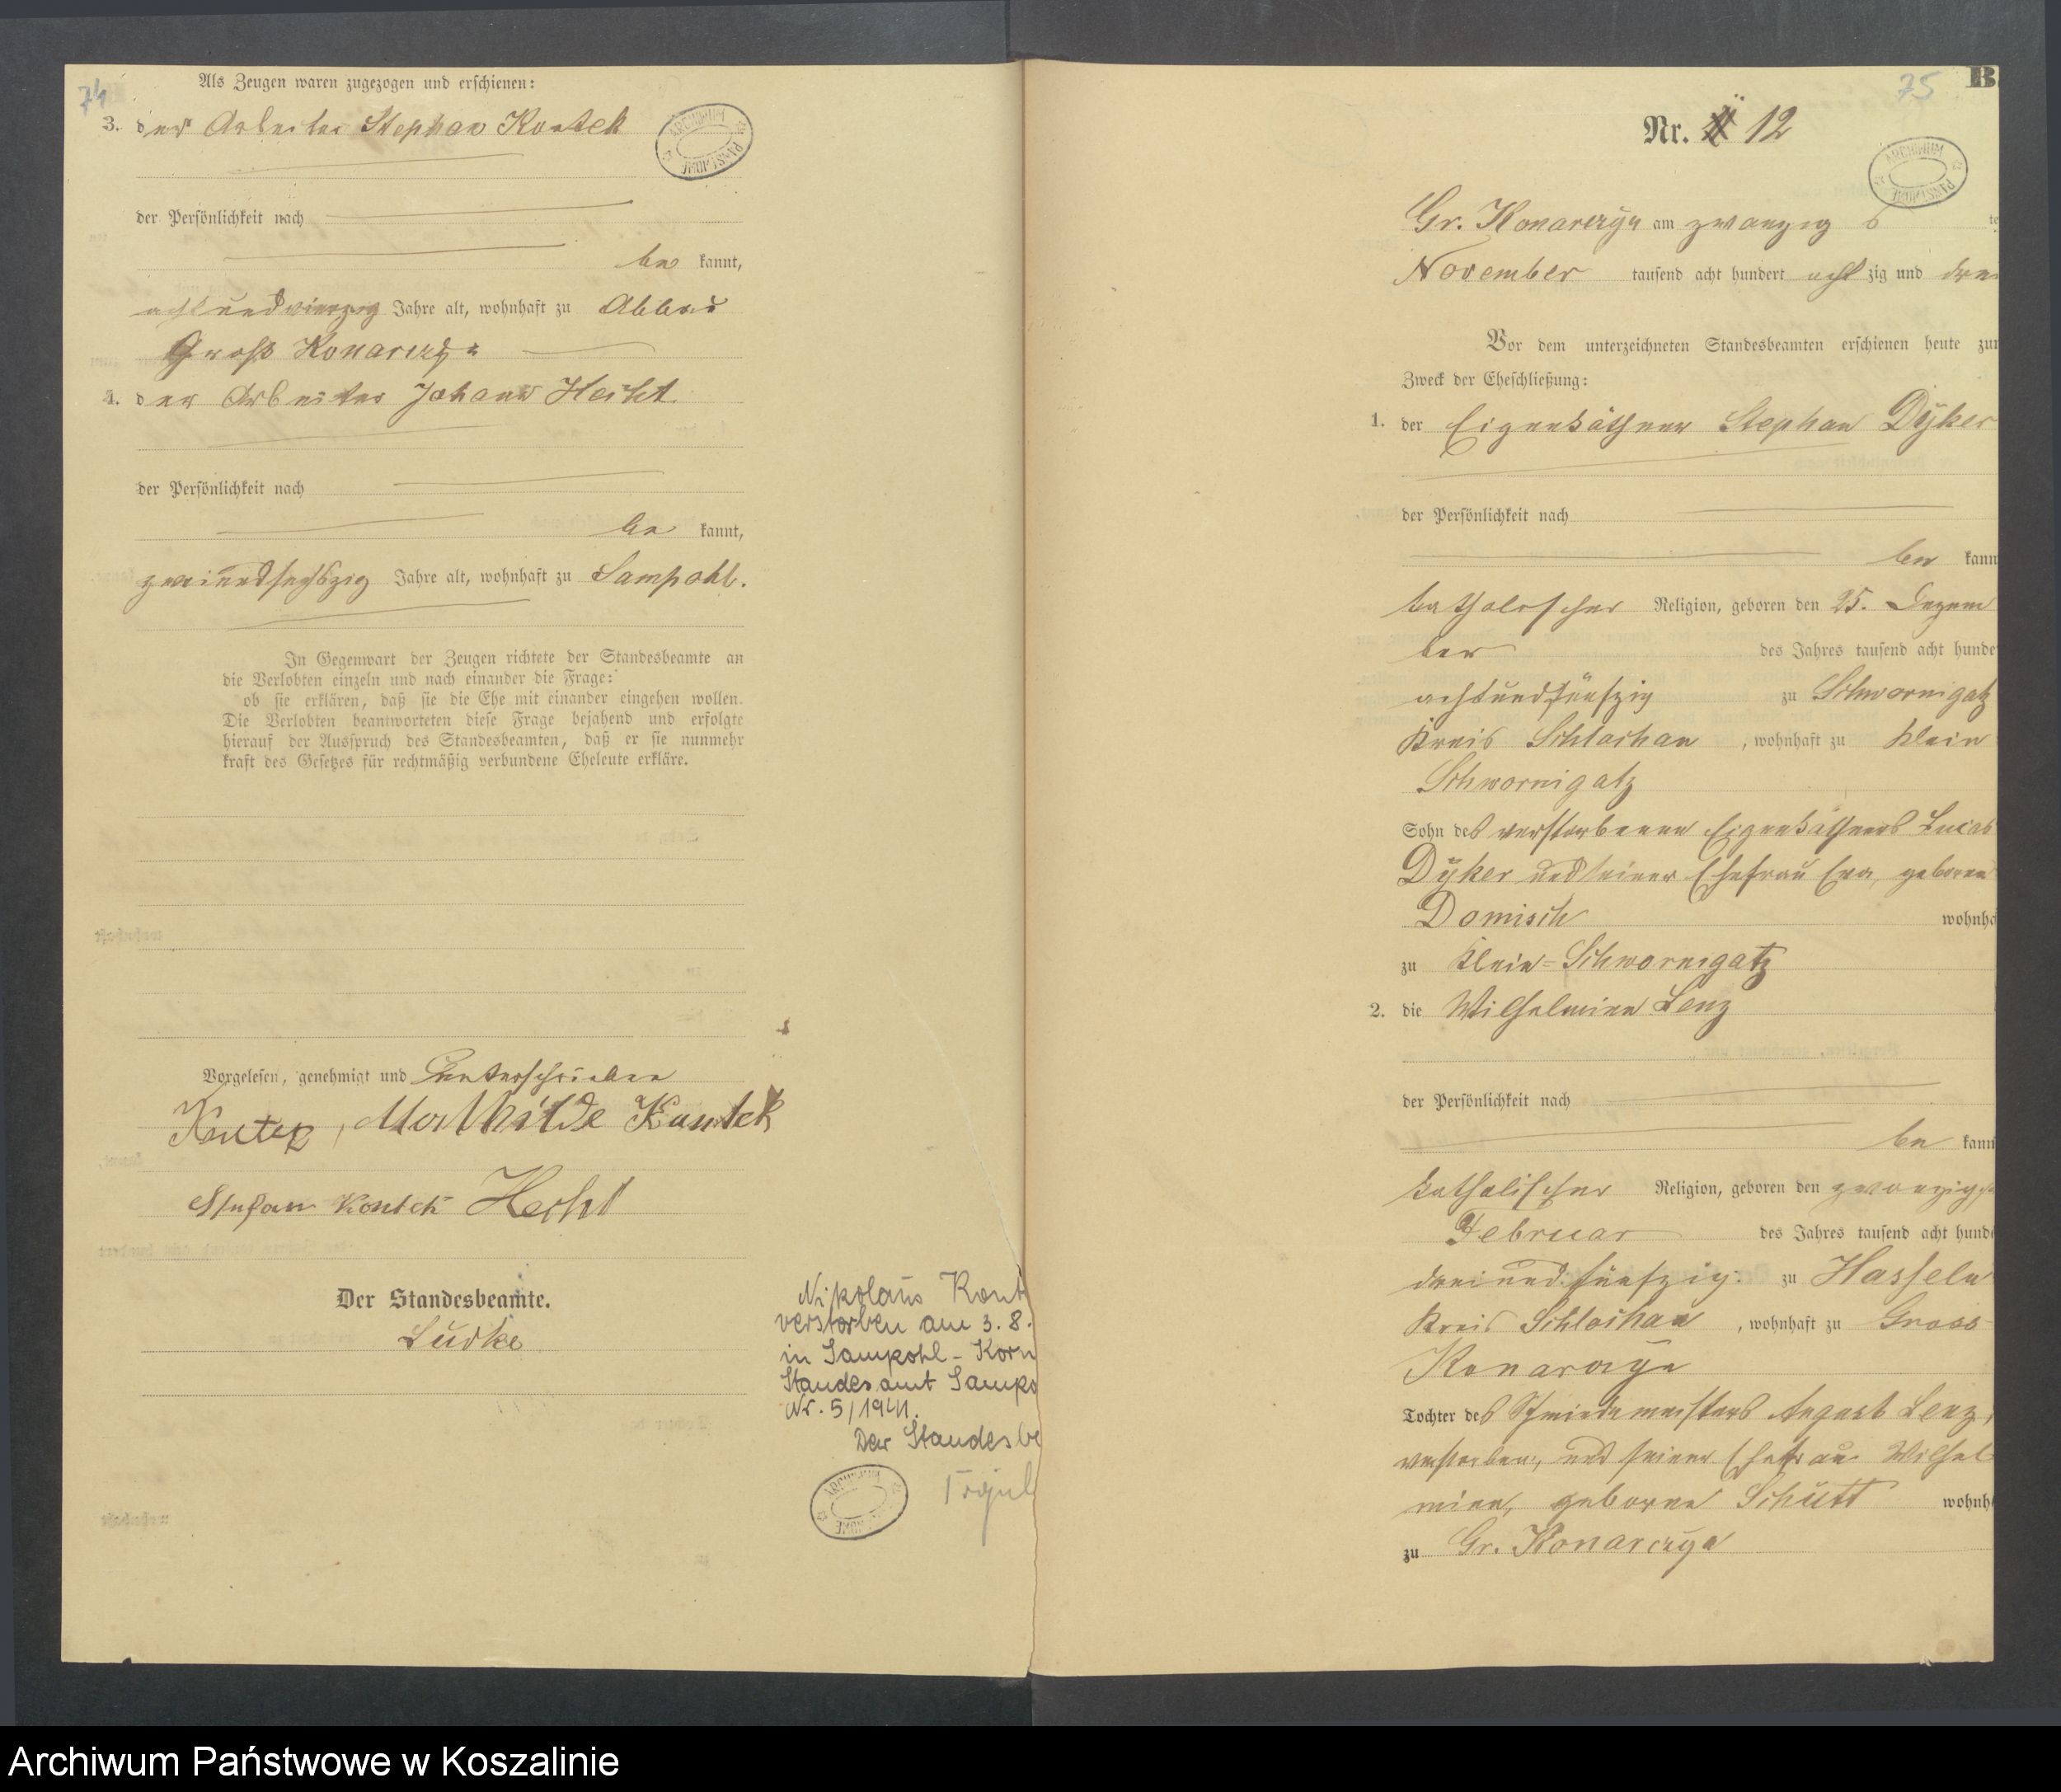 74
Als Zeugen waren zugezogen und erschienen:
3. der Arbeiter Stephan Kontek
der Persönlichkeit nach
be kannt,
achtundvierzig Jahre alt, wohnhaft zu Abbau
Groß Konarczyn
4. der Arbeiter Johann Hecht
der Persönlichkeit nach
be kannt,
zweiundsechszig Jahre alt, wohnhaft zu Sampohl.
In Gegenwart der Zeugen richtete der Standesbeamte an
die Verlobten einzeln und nach einander die Frage:
ob sie erklären, daß sie die Ehe mit einander eingehen wollen.
Die Verlobten beantworteten diese Frage bejahend und erfolgte
hierauf der Ausspruch des Standesbeamten, daß er sie nunmehr
kraft des Gesetzes für rechtmäßig verbundene Eheleute erkläre.
Vorgelesen, genehmigt und unterschrieben
Mathilde Kontek
Stefan Kontek Hecht
Der Standesbeamte.
Lüdke
Nikolaus Kont
verstorben am 3. 8.
in Sampohl - Korn
Standesamt Sampo
Nr. 5/1941.
Der Standesbe
ARCHIWUM PAŃSTWOWE
75
B
Nr. 12
ARCHIWUM PAŃSTWOWE
Gr. Konarczyn am zwanzig s te
November tausend acht hundert acht zig und drei
Vor dem unterzeichneten Standesbeamten erschienen heute zum
Zweck der Eheschließung:
1. der Eigenkäthner Stephan Dÿker
der Persönlichkeit nach
be kann
katholischer Religion, geboren den 25. Dezem
ber des Jahres tausend acht hunde
achtundfünfzig zu Schwornigatz
Kreis Schlochau, wohnhaft zu Klein
Schwornigatz
Sohn des verstorbenen Eigenkäthners Lucas
Dÿker und seiner Ehefrau Eva, geborene
Domisch wohnha
zu Klein-Schwornigatz
2. die Wilhelmine Lenz
der Persönlichkeit nach
be kann
katholischer Religion, geboren den zwanzigste
Februar des Jahres tausend acht hunde
dreiundfünfzig zu Hasseln
Kreis Schlochau, wohnhaft zu Gross
Konarczyn
Tochter des Schmiedemeisters August Lenz,
verstorben, und seiner Ehefrau Wilhel
mine, geborne Schütt wohnh
zu Gr. Konarczyn
Archiwum Państwowe w Koszalinie